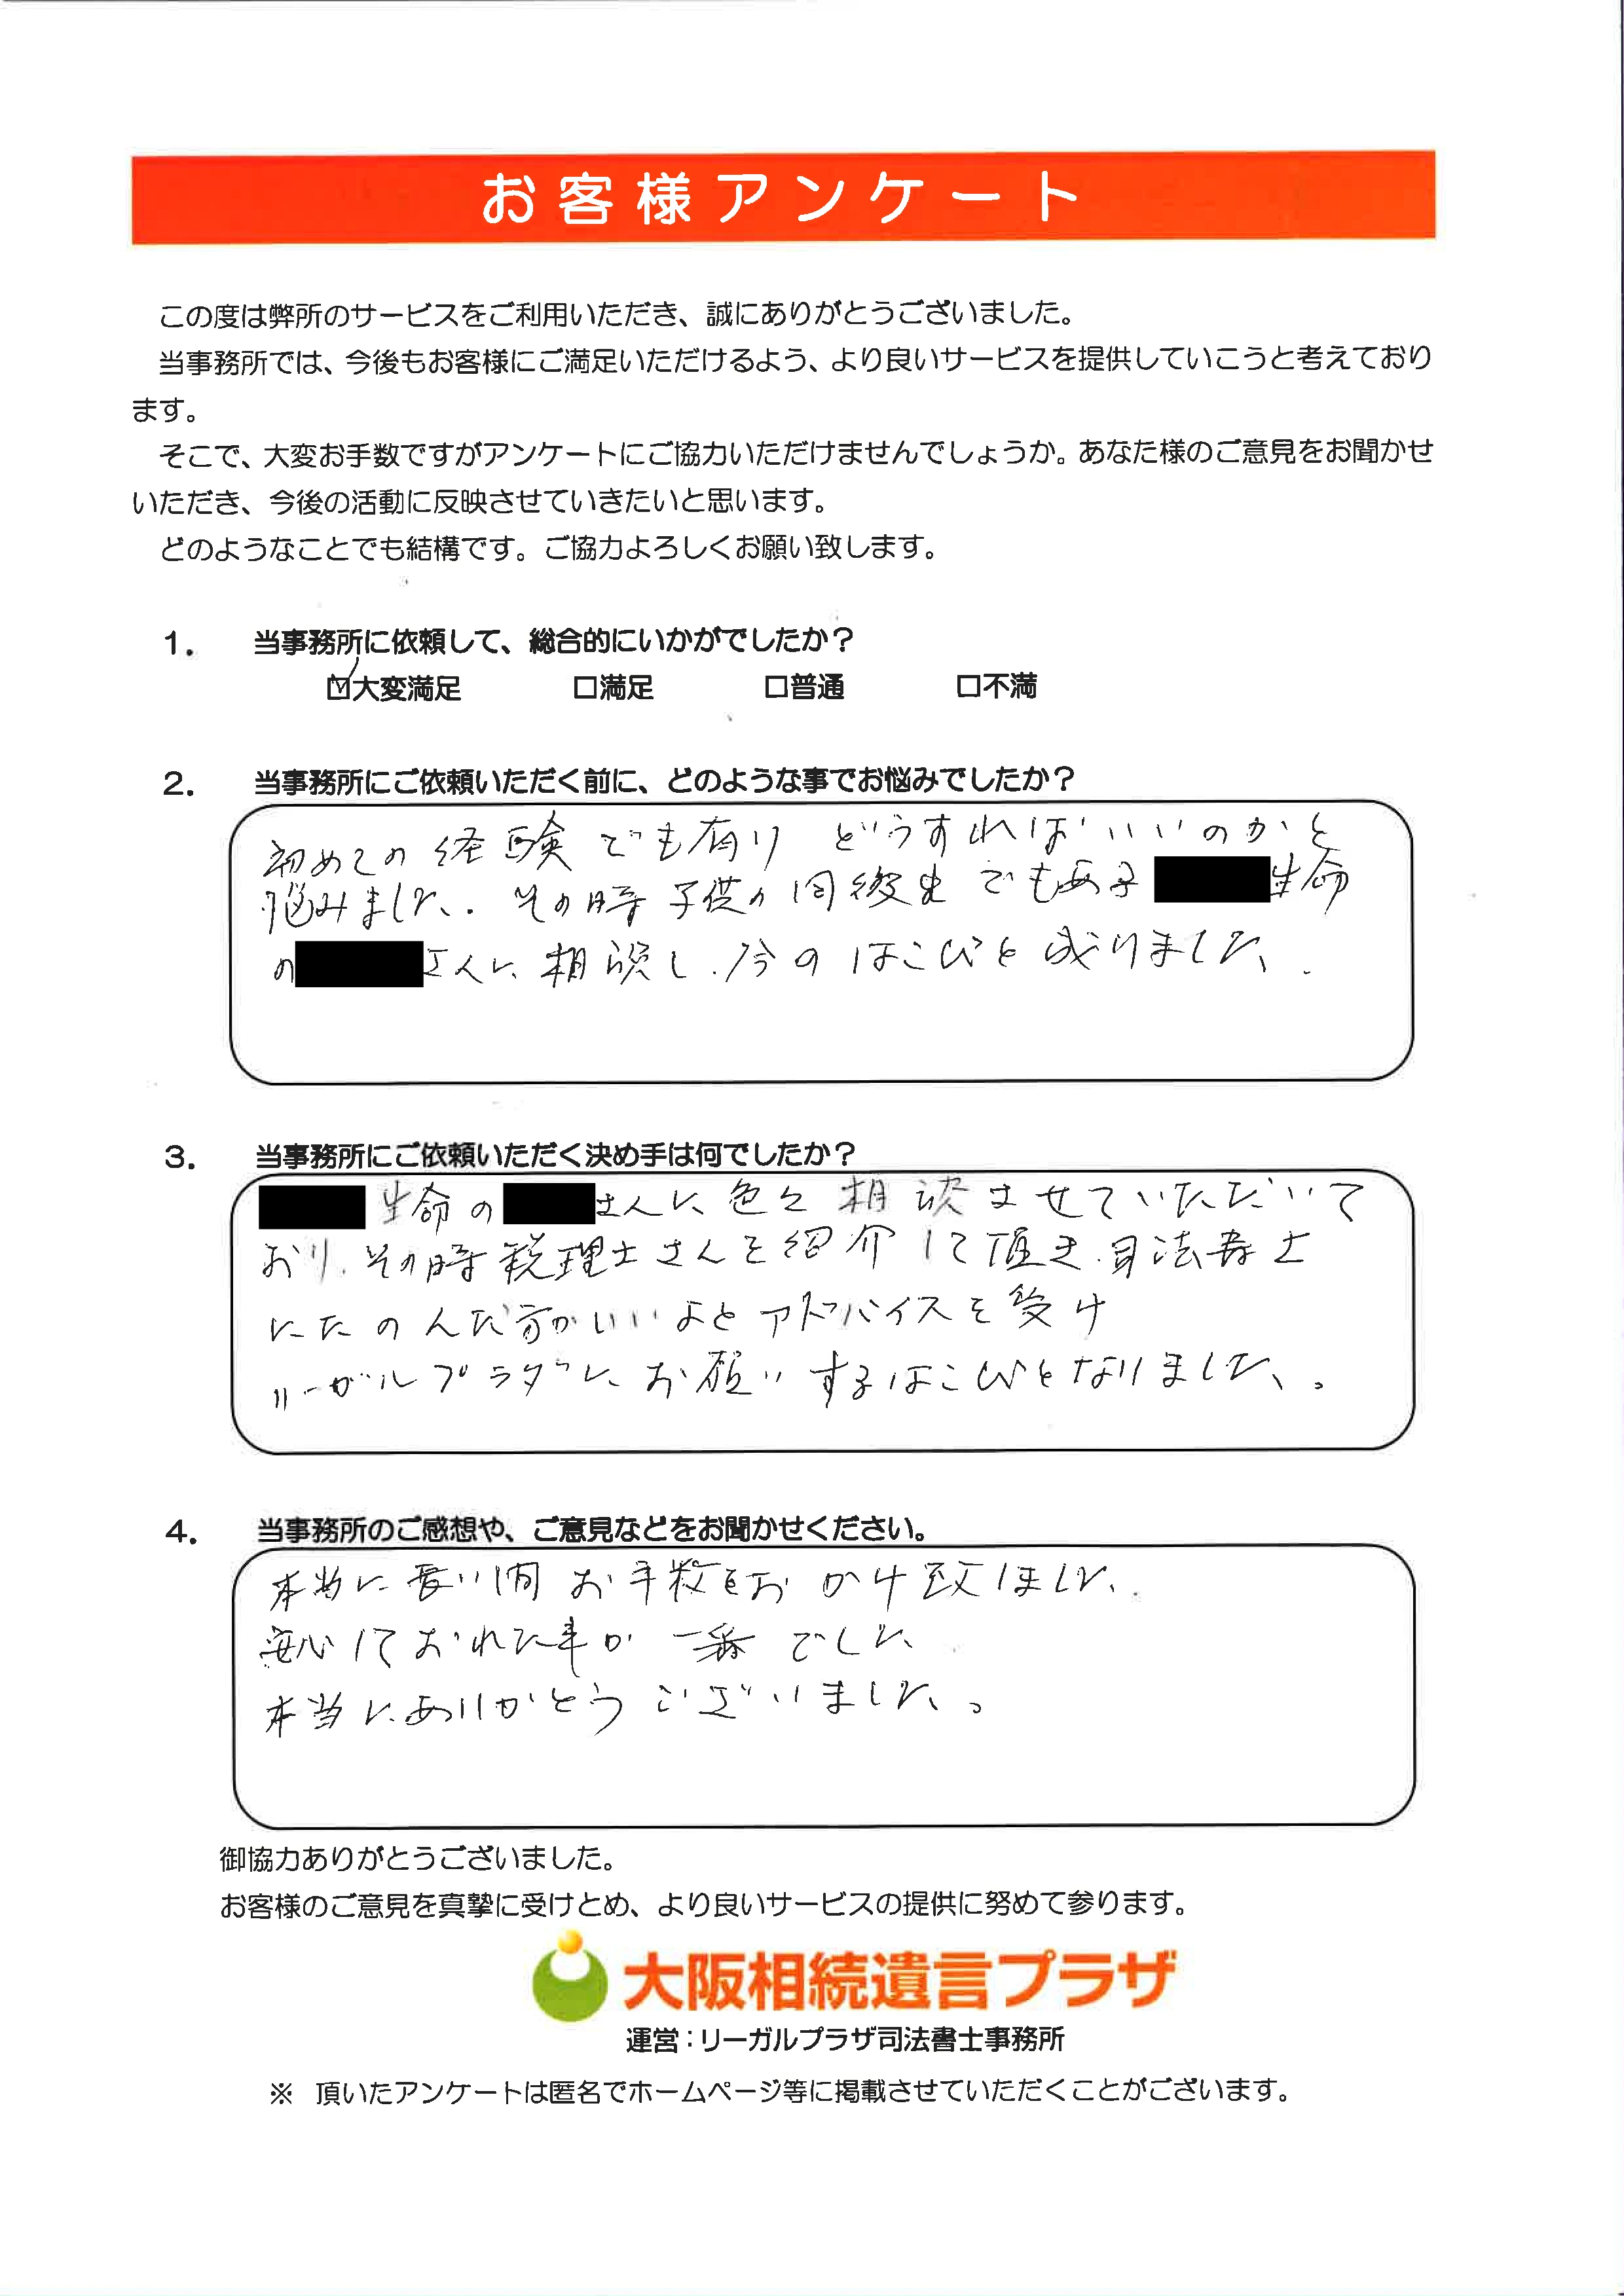 お客様アンケート
この度は弊所のサービスをご利用いただき、誠にありがとうございました。
当事務所では、今後もお客様にご満足いただけるよう、より良いサービスを提供していこうと考えており
ます。
そこで、大変お手数ですがアンケートにご協力いただけませんでしょうか。あなた様のご意見をお聞かせ
いただき、今後の活動に反映させていきたいと思います。
どのようなことでも結構です。ご協力よろしくお願い致します。
1. 当事務所に依頼して、総合的にいかがでしたか？
☑大変満足 □満足 □普通 □不満
2. 当事務所にご依頼いただく前に、どのような事でお悩みでしたか？
初めての経験でも有り どうすればいいのかと
悩みました. その時子供の同級生でもある 生命
の さんに相談し.今のはこびと成りました.
3. 当事務所にご依頼いただく決め手は何でしたか？
生命の さんに色々相談させていただいて
おり.その時税理士さんを紹介して頂き.司法書士
にたのんだ方がいいよとアドバイスを受け
リーガルプラザにお願いするはこびとなりました。
4. 当事務所のご感想や、ご意見などをお聞かせください。
本当に長い間お手数をおかけ致しました.
安心しておれた事が一番でした
本当にありがとうございました。
御協力ありがとうございました。
お客様のご意見を真摯に受けとめ、より良いサービスの提供に努めて参ります。
大阪相続遺言プラザ
運営：リーガルプラザ司法書士事務所
※ 頂いたアンケートは匿名でホームページ等に掲載させていただくことがございます。